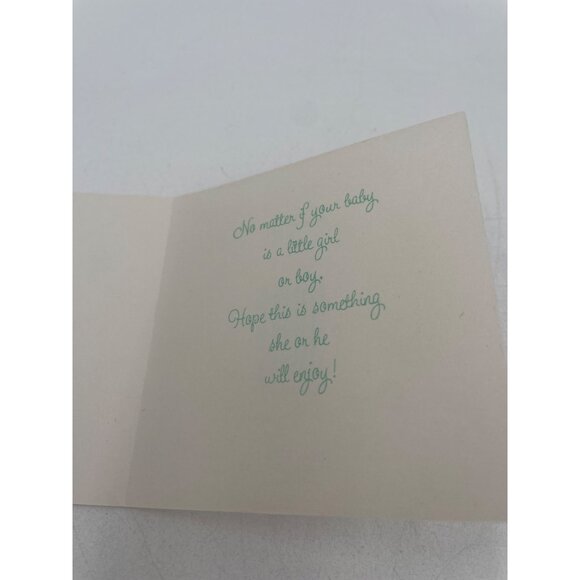 No matter if your baby
is a little girl
or boy,
Hope this is something
she or he
will enjoy!